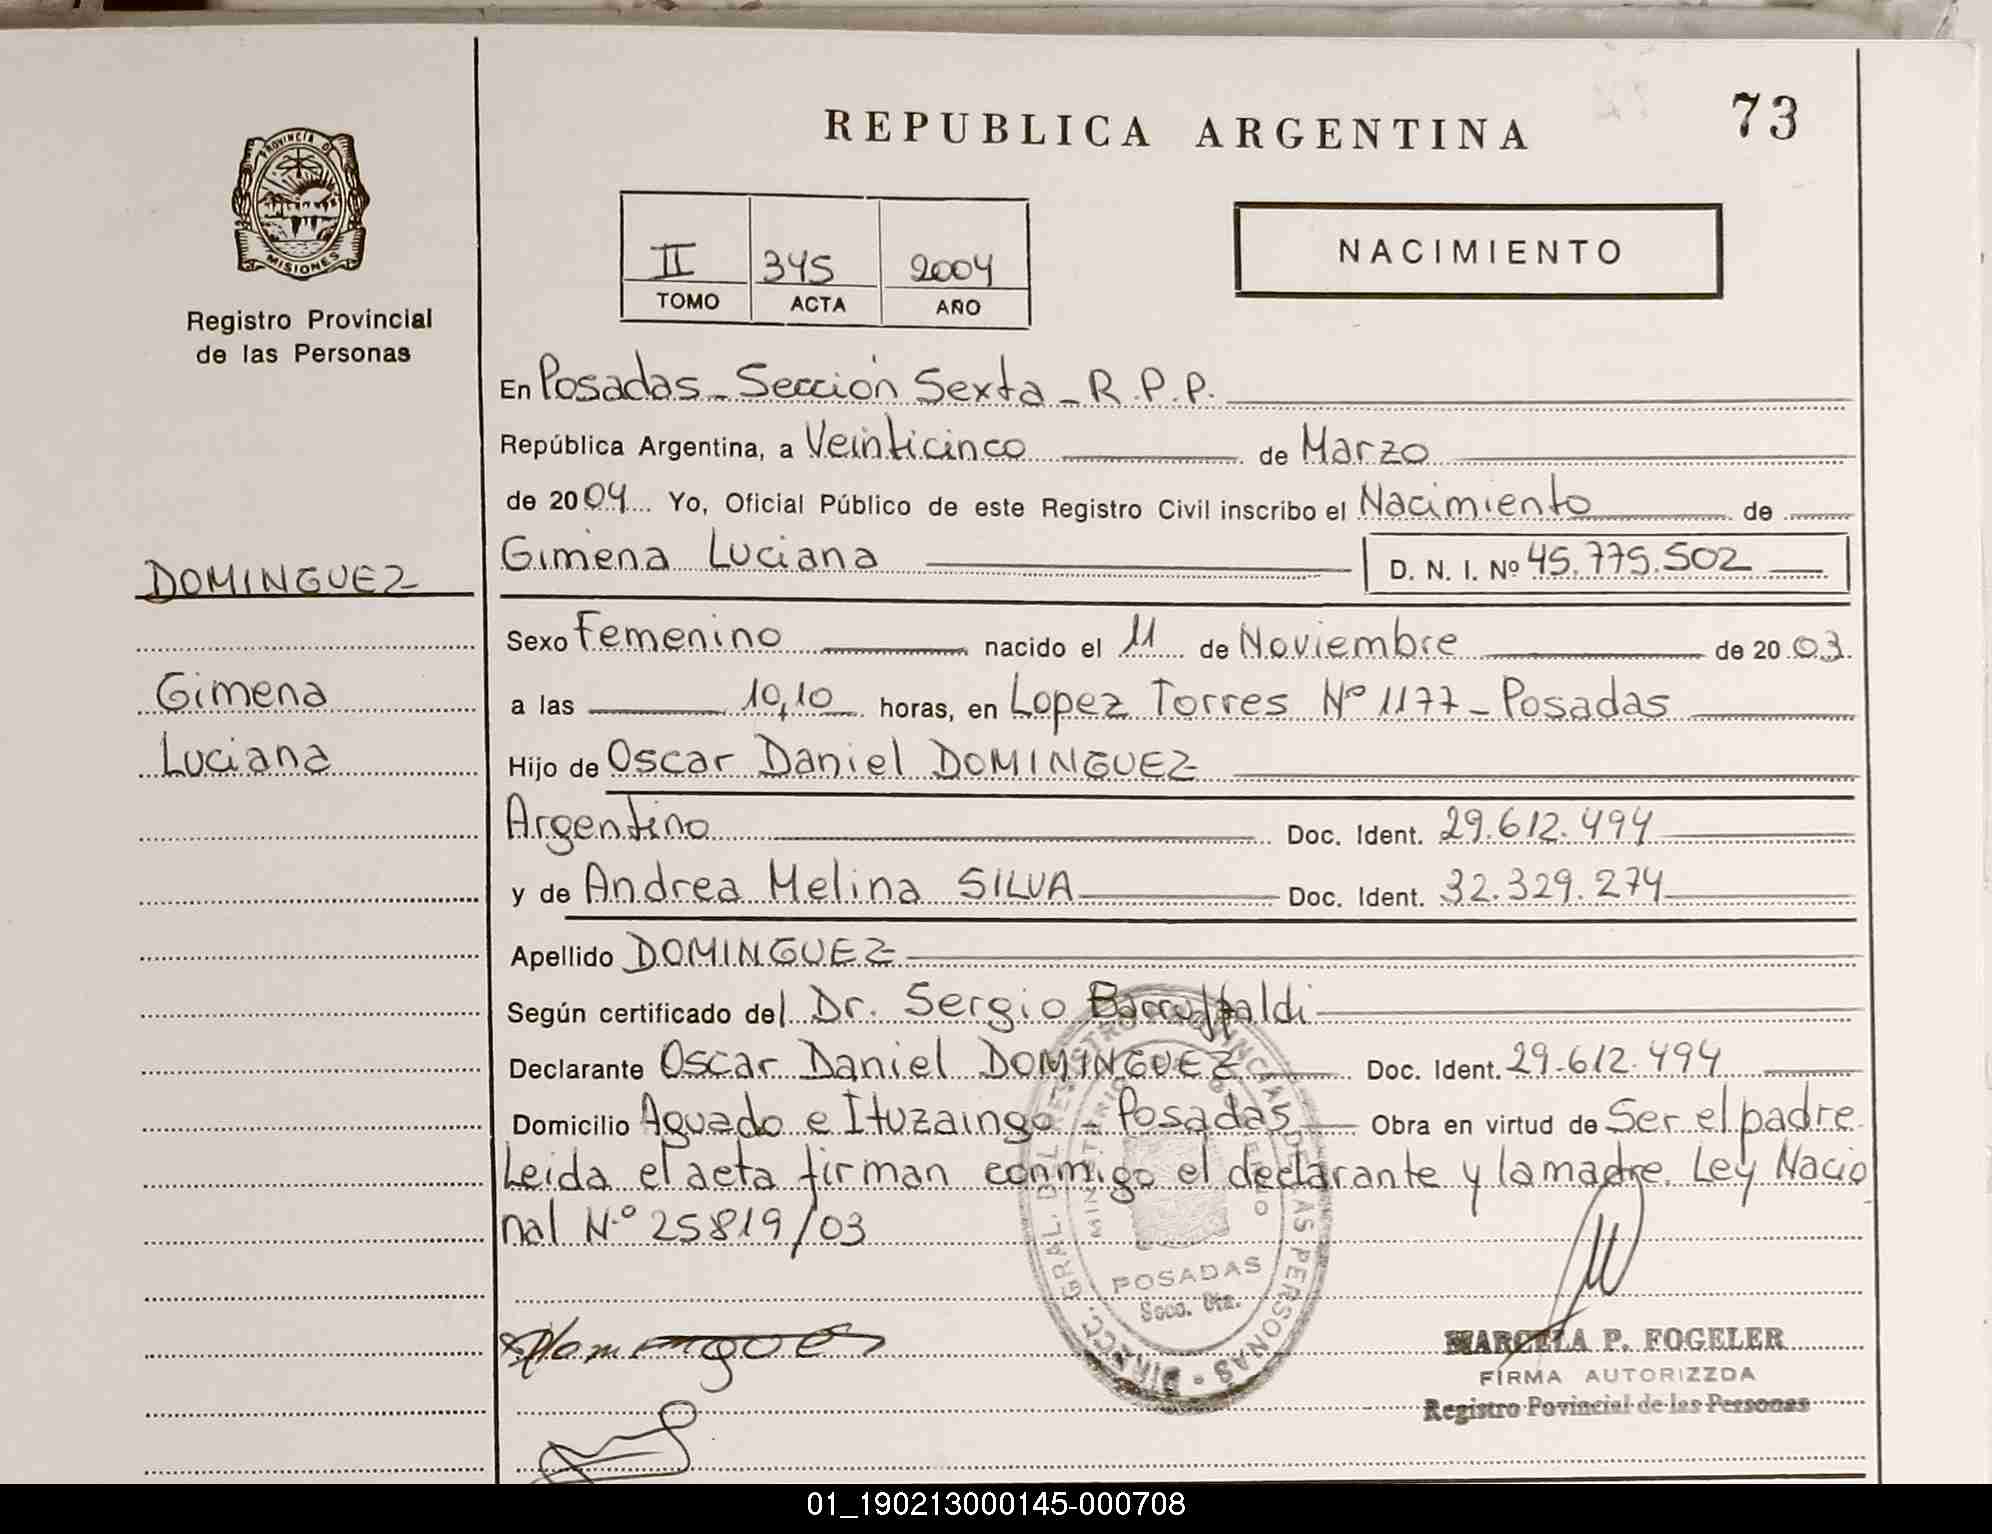 REPUBLICA ARGENTINA
73
PROVINCIA DE
MISIONES
Registro Provincial
de las Personas
II 345 2004
TOMO ACTA AÑO
NACIMIENTO
En Posadas - Sección Sexta - R.P.P.
República Argentina, a Veinticinco de Marzo
de 2004 Yo, Oficial Público de este Registro Civil inscribo el Nacimiento de
Gimena Luciana D. N. I. Nº 45.775.502
DOMINGUEZ
Sexo Femenino nacido el 11 de Noviembre de 2003
Gimena
a las 10,10 horas, en Lopez Torres Nº 1177 - Posadas
Luciana
Hijo de Oscar Daniel DOMINGUEZ
Argentino Doc. Ident. 29.612.494
y de Andrea Melina SILVA Doc. Ident. 32.329.274
Apellido DOMINGUEZ
Según certificado del Dr. Sergio Barruffaldi
Declarante Oscar Daniel DOMINGUEZ Doc. Ident. 29.612.494
Domicilio Aguado e Ituzaingo - Posadas Obra en virtud de Ser el padre.
Leida el acta firman conmigo el declarante y la madre. Ley Nacio
nal N.º 25819/03
POSADAS
MARCELA P. FOGELER
FIRMA AUTORIZZDA
Registro Povincial de las Personas
01_190213000145-000708